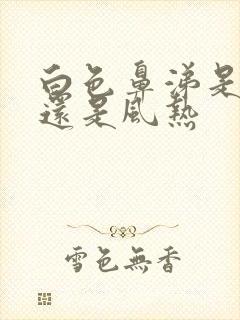 白色鼻涕是
還是風熱
雪色無香